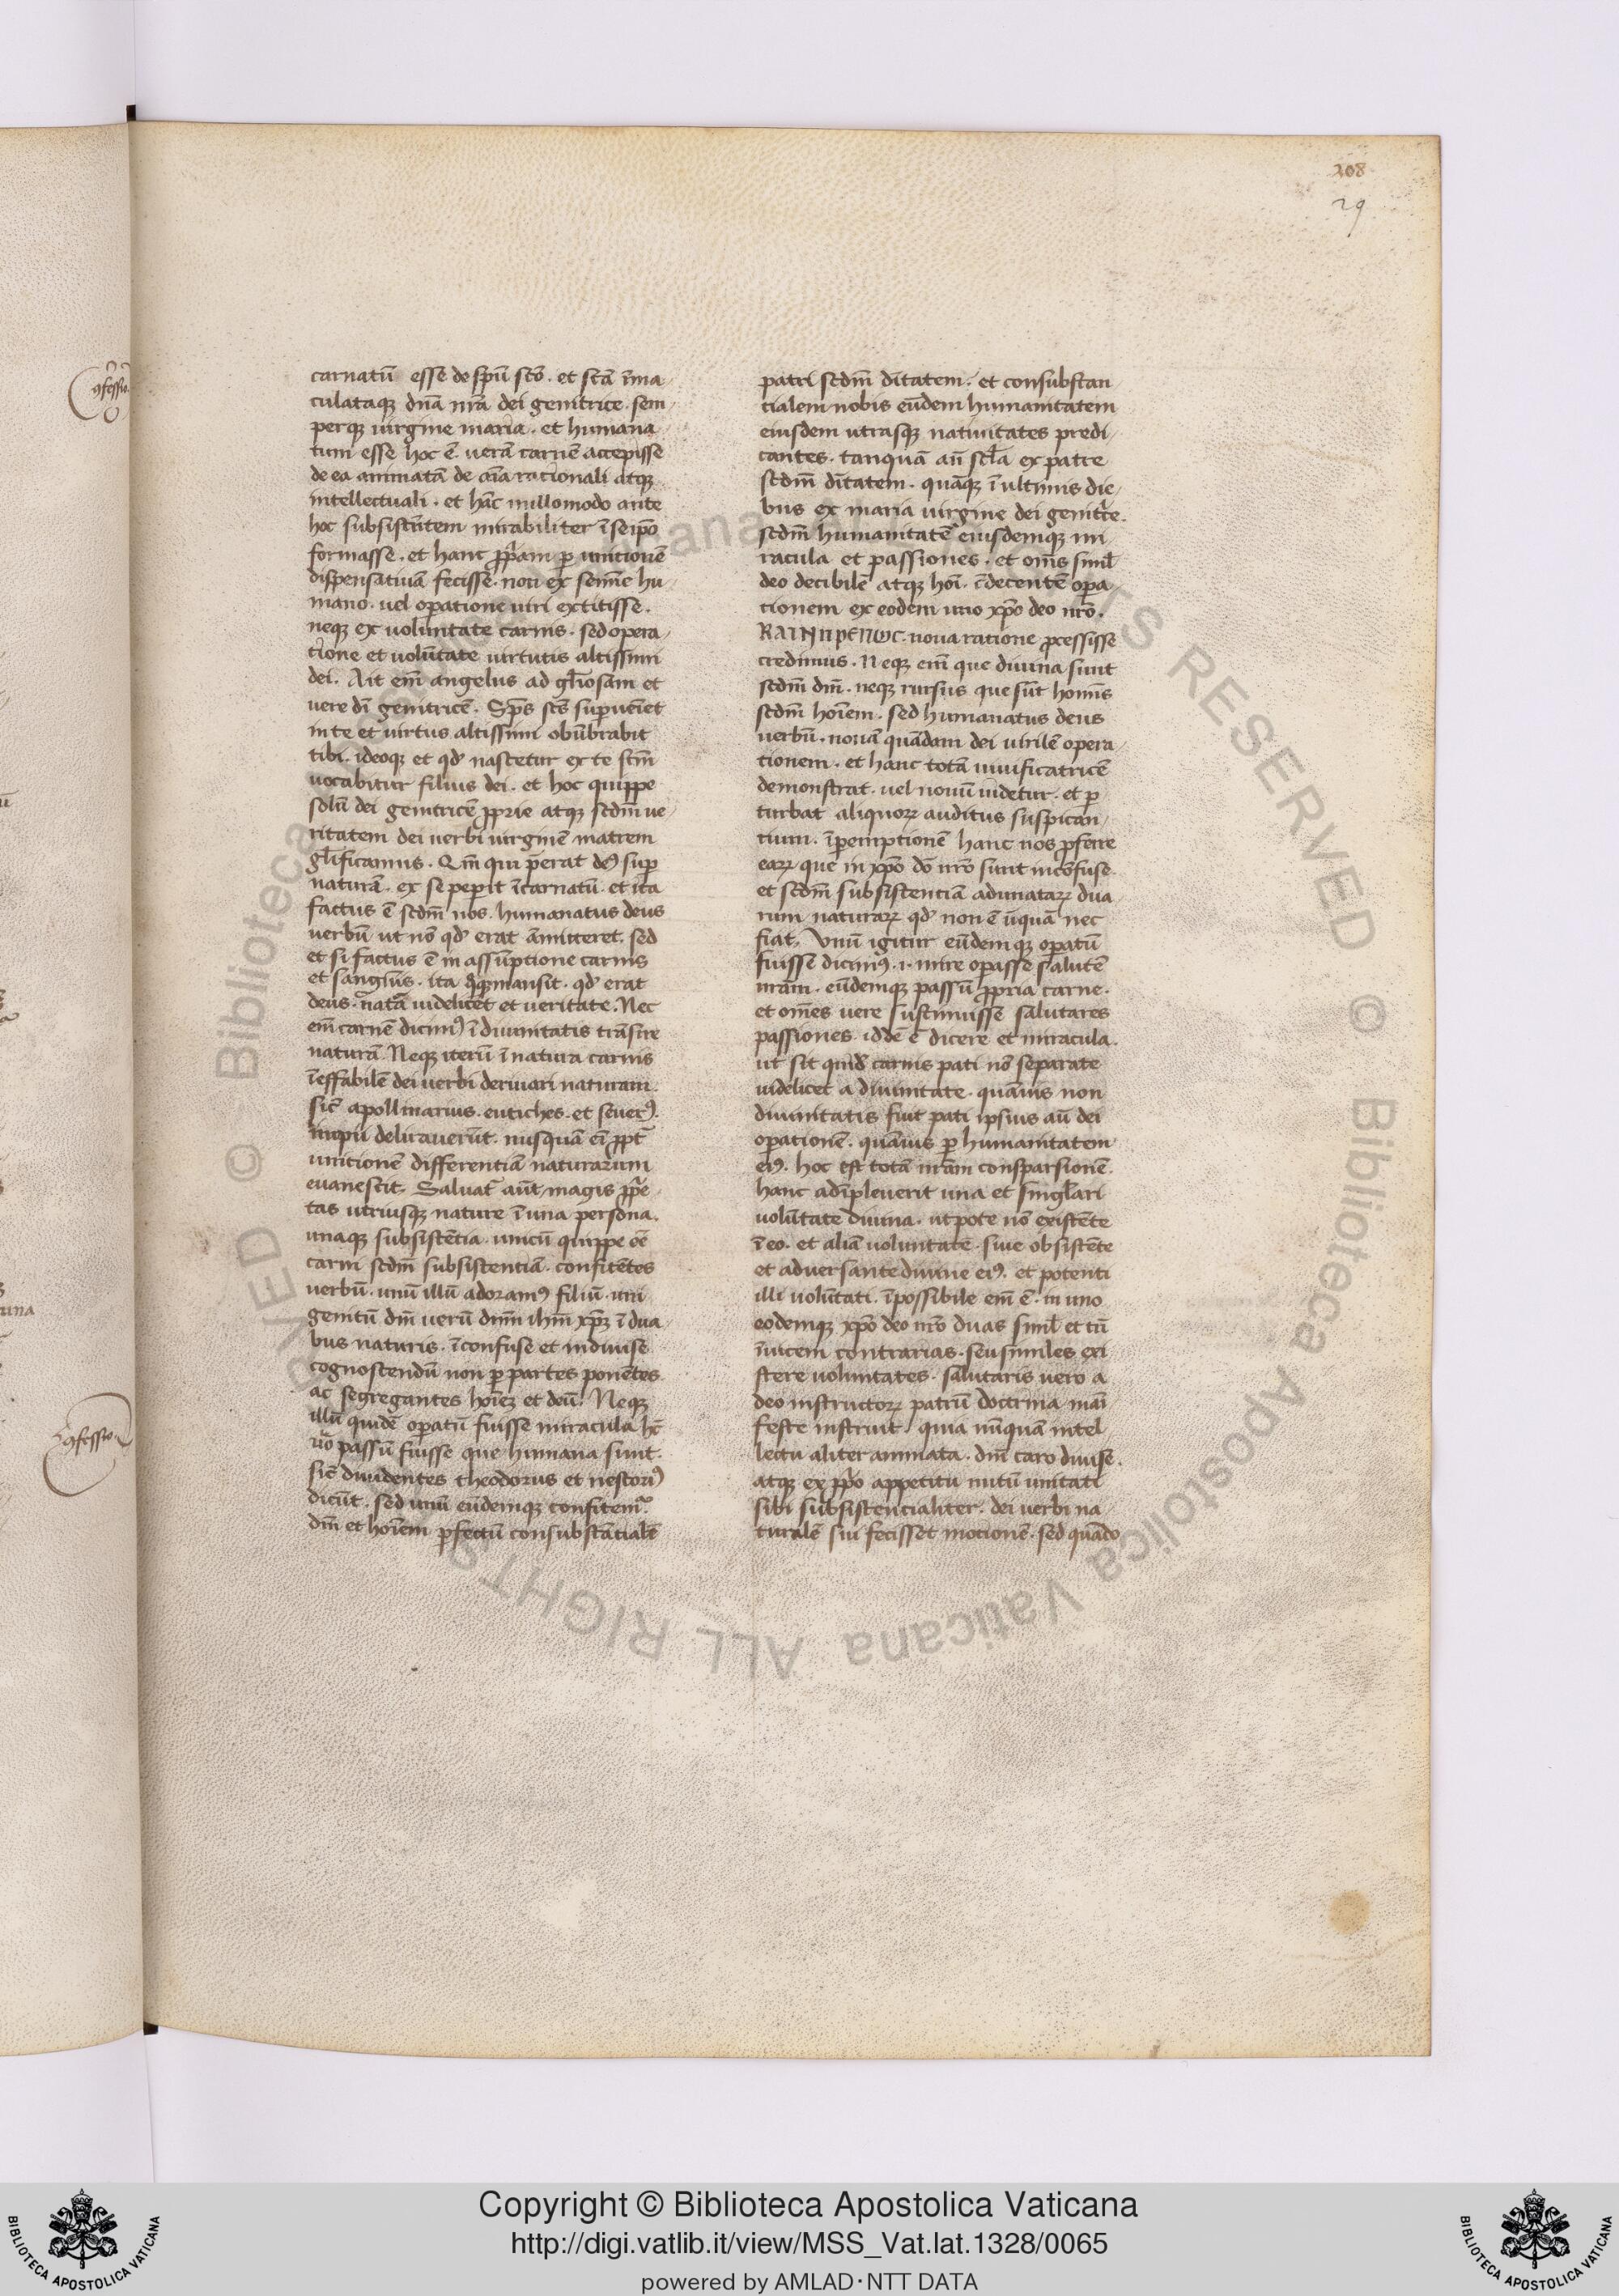 208
29
carnatū esse de spū scō. et scā īma
culataqꝫ dnā nrā dei genitrice sem
perqꝫ uirgine maria. et humana
tum esse hoc ē uerā carnē accepisse
de ea animatā de aīa racionali atqꝫ
intellectuali. et hāc nullomodo ante
hoc subsistētem mirabiliter ī se ipō
formasse. et hanc ꝓpriam ꝑ unitionē
dispensatiuā fecisse. non ex semīe hu
mano. uel oꝑatione uiri extitisse.
neqꝫ ex uoluntate carnis. sed opera
tione et uolūtate uirtutis altissimi
dei. Ait em̄ angelus ad gl̄iosam et
uere dī genitricē. Sp̄s scs̄ suꝑueīet
in te et uirtus altissimi obūbrabit
tibi. ideoqꝫ et qd̓ nascetur ex te scm̄
uocabitur filius dei. et hoc quippe
solū dei genitricē ꝓprie atqꝫ scdm̄ ue
ritatem dei uerbi uirginē matrem
gl̄ificamus. Qm̄ qui p̄erat deꝰ suꝑ
naturā. ex se peꝑit īcarnatū. et ita
factus ē scdm̄ nos. humanatus deus
uerbū ut nō qd̓ erat āmitteret. sed
et si factus ē in assūptione carnis
et sangīus. ita mansit. qd̓ erat
deus. natā uidelicet et ueritate. Nec
em̄ carnē dicimꝰ ī diuinitatis trāsire
naturā. Neqꝫ iterū ī natura carnis
īeffabilē dei uerbi deriuari naturam.
sic̄ apollinarius. eutiches. et seuerꝰ.
impii delirauerūt. nusquā ei ꝓpt̄
unitionē differentiā naturarum
euanescit. Saluat̄ aūt magis ꝓprie
tas utriusqꝫ nature ī una persona.
unaqꝫ subsistētia. unicū quippe
carni scdm̄ subsistentiā. confitētes
uerbū. unū illū adoramꝰ filiū. uni
genitū dm̄ uerū dnm̄ ihm̄ xp̄ꝫ ī dua
bus naturis. īconfuse et indiuise
cognoscendū non ꝑ partes ponētes
ac segregantes hoīeꝫ et deū. Neqꝫ
illū quidē oꝑatū fuisse miracula hc̄
u̓o passū fuisse que humana sunt.
sic̄ diuidentes theodorus et nestoriꝰ
dicūt. sed unū eūdemqꝫ confitemr̄.
dm̄ et hoīem ꝑfectū consubstātialē
patri scdm̄ dītatem. et consubstan
tialem nobis eūdem humanitatem
eiusdem utrasqꝫ natiuitates predi
cantes. tanquā an̄ scl̄a ex patre
scdm̄ dītatem. quāqꝫ ī ultimis die
bus ex maria uirgine dei genitr̄ce.
scdm̄ humanitatē eiusdemqꝫ mi
racula et passiones. et om̄s simĺ
deo decibilē atqꝫ hoī. īdecentē oꝑa
tionem ex eodem uno xp̄o deo nrō.
noua ratione ꝓcessisse
credimus. Neqꝫ em̄ que diuina sunt
scdm̄ dm̄. neqꝫ rursus que sūt homīs
scdm̄ hoīem. sed humanatus deus
uerbū. nouā quādam dei uirilē opera
tionem. et hanc totā uiuificatricē
demonstrat. uel nouū uidetur. et ꝑ
turbat aliquoꝝ auditus suspican
tium. īꝑemptionē hanc nos ꝓferre
eaꝝ que in xp̄o dō nrō sunt incōfuse.
et scdm̄ subsistentiā adunataꝝ dua
rum naturaꝝ qd̓ non ē ūquā nec
fiat. Unū igitur eūdemqꝫ oꝑatū
fuisse dicimꝰ. i. mire oꝑasse salutē
nrām. eūdemqꝫ passū ꝓpria carne.
et om̄es uere sustinuisse salutares
passiones. iddē ē dicere et miracula.
ut sit quid̓ carnis pati nō separate
uidelicet a diuinitate. quāuis non
diuinitatis fiut pati ipsius aū dei
oꝑationē. quāuis ꝑ humanitatem
eiꝰ. hoc est totā nrām consparsionē.
hanc adīpleuerit una et singl̄ari
uolūtate diuina. utpote nō existēte
ī eo. et aliā uoluntatē. siue obsistēte
et aduersante diuine eiꝰ. et potenti
illi uolūtati. īpossibile em̄ ē. in uno
eodemqꝫ xp̄o deo nrō duas simĺ et cū
īuicem contrarias. seu similes exi
stere uoluntates. salutaris uero a
deo instructoꝝ patrū doctrina mani
feste instruit. quia nūquā intel
lectu aliter animata. dn̄i caro diuise.
atqꝫ ex ꝓprio appetitu nutū unitati
sibi subsistencialiter. dei uerbi na
turalē siu fecisset motionē. sed quādo
Copyright © Biblioteca Apostolica Vaticana
http://digi.vatlib.it/view/MSS_Vat.lat.1328/0065
powered by AMLAD·NTT DATA
BIBLIOTECA APOSTOLICA VATICANA
BIBLIOTECA APOSTOLICA VATICANA